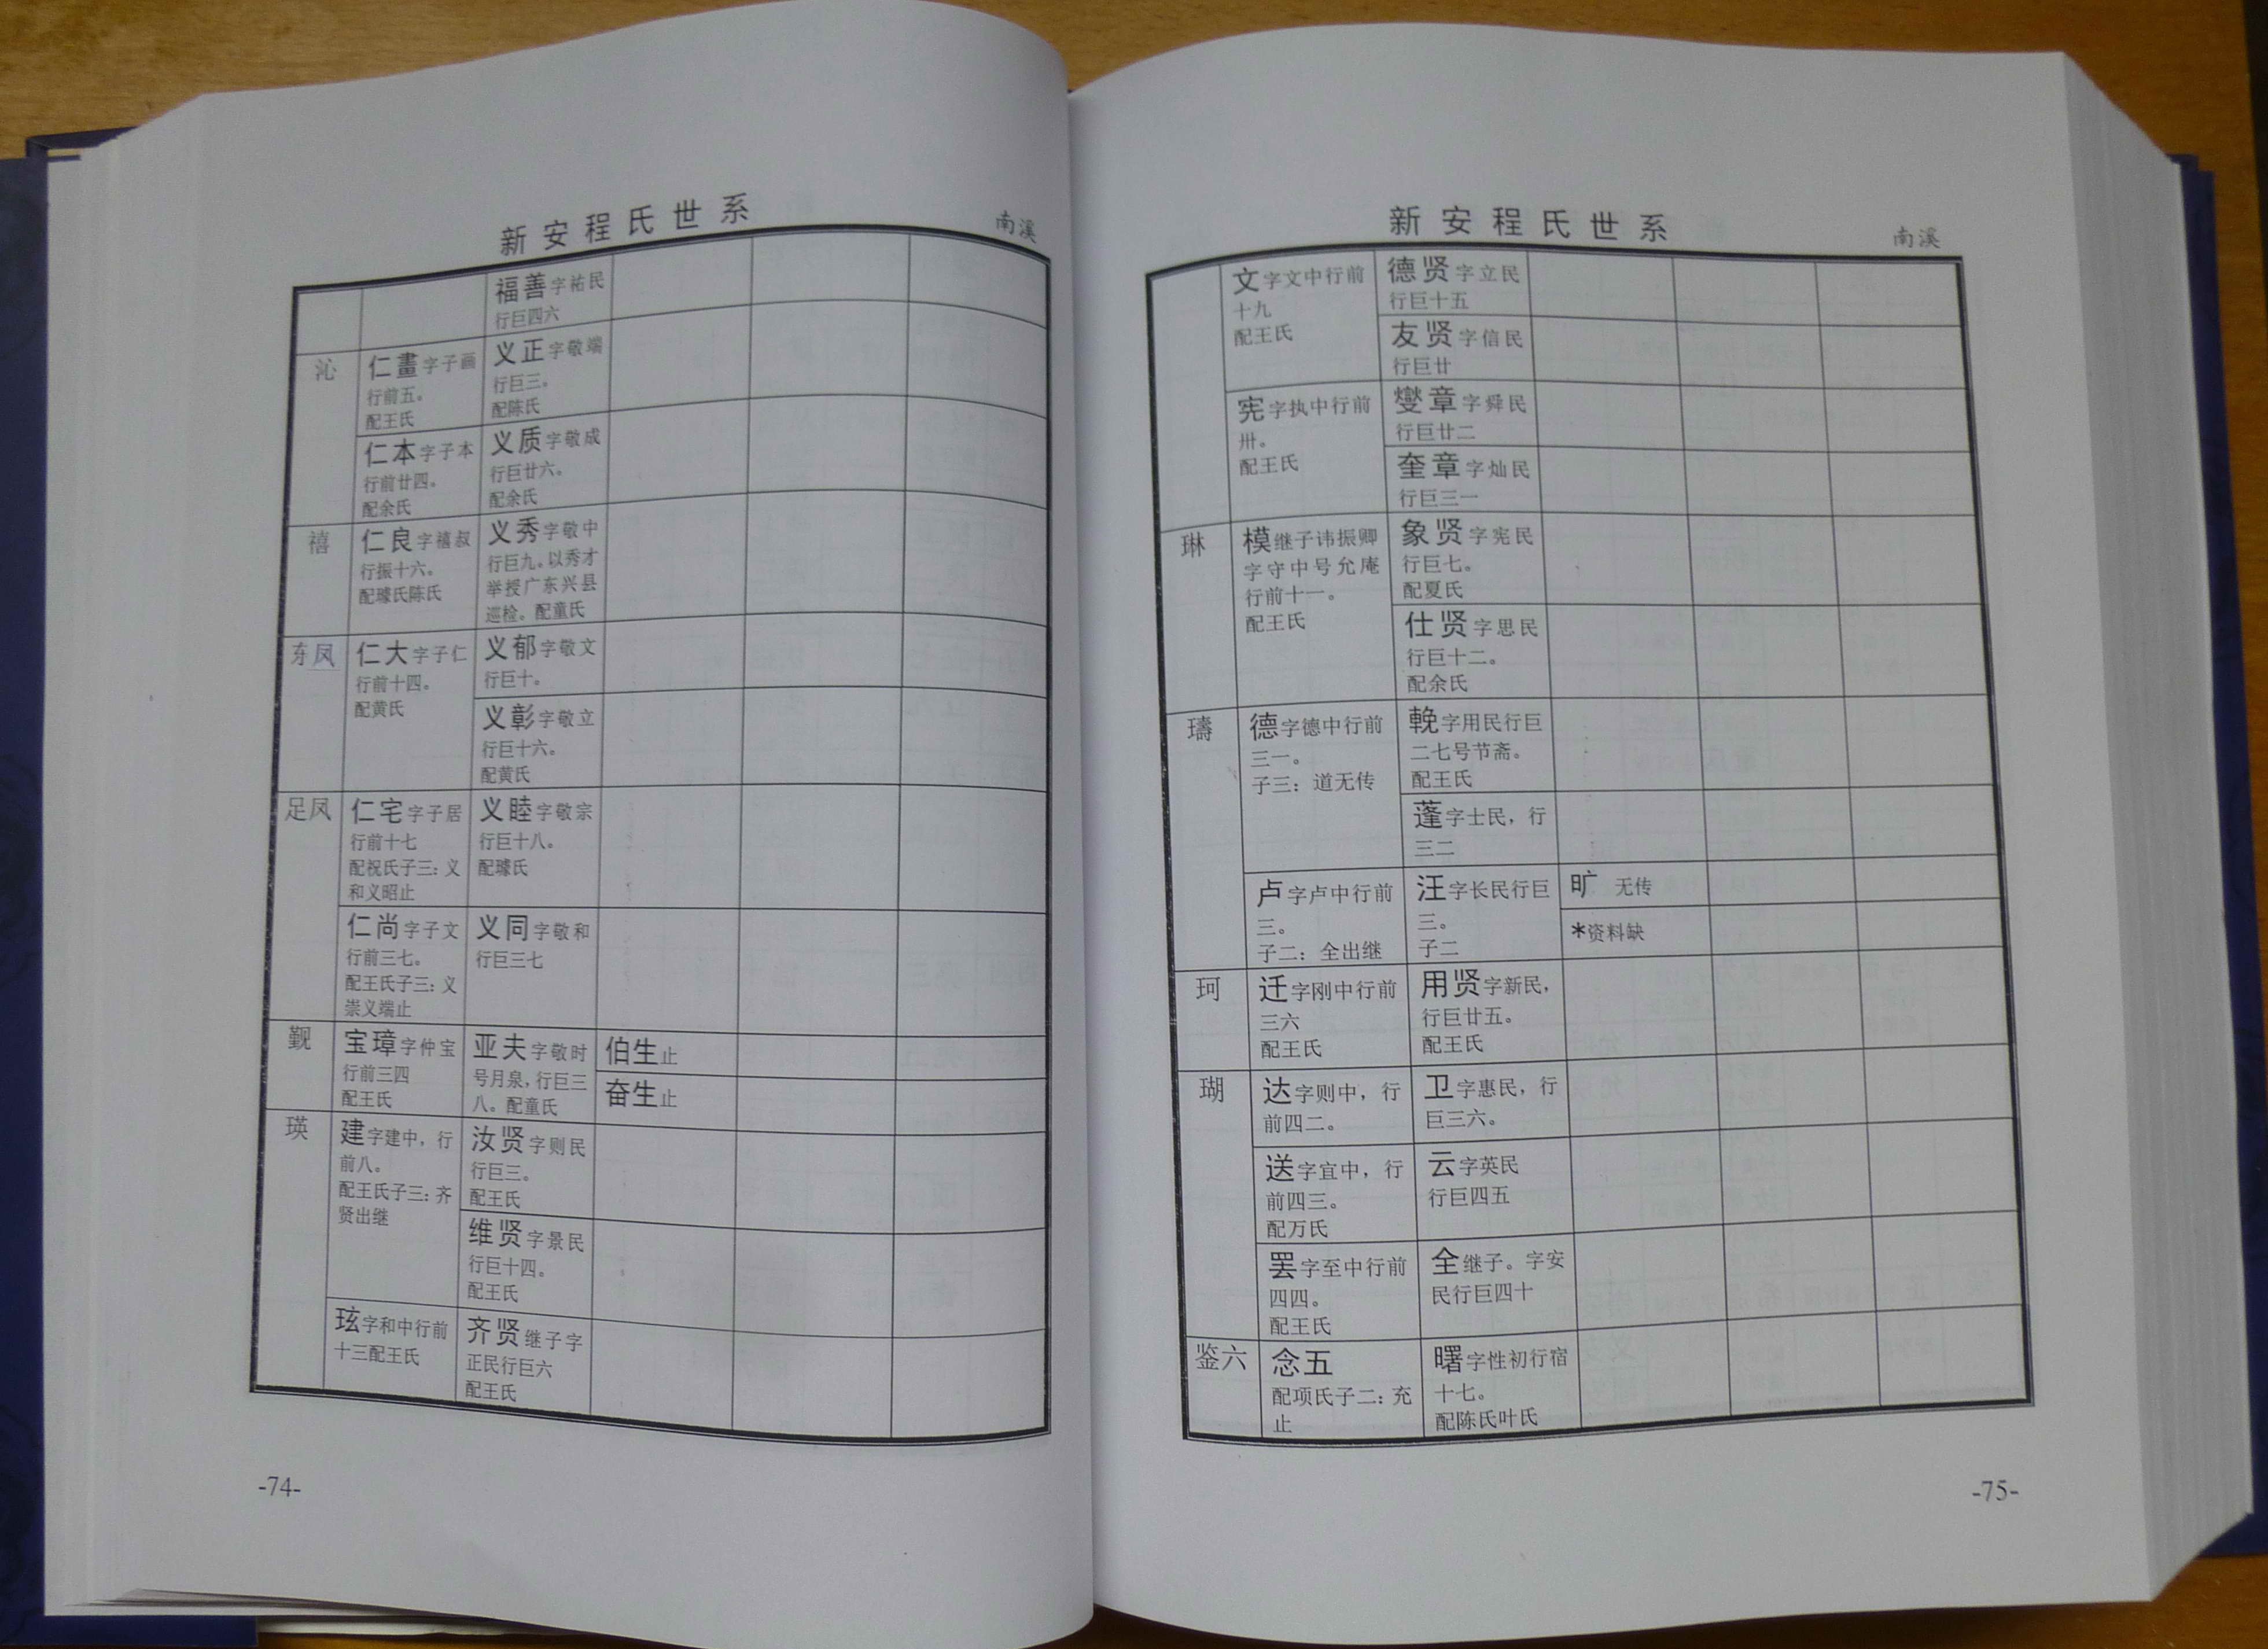 新安程氏世系
南溪
福善字祐民
行巨四六
沁
仁畫字子画
行前五。
配王氏
义正字敬端
行巨三。
配陈氏
仁本字子本
行前廿四。
配余氏
义质字敬成
行巨廿六。
配余氏
禧
仁良字禧叔
行振十六。
配璩氏陈氏
义秀字敬中
行巨九。以秀才
举授广东兴县
巡检。配童氏
东凤
仁大字子仁
行前十四。
配黄氏
义郁字敬文
行巨十。
义彰字敬立
行巨十六。
配黄氏
足凤
仁宅字子居
行前十七
配祝氏子三：义
和义昭止
义睦字敬宗
行巨十八。
配璩氏
仁尚字子文
行前三七。
配王氏子三：义
崇义端止
义同字敬和
行巨三七
觐
宝璋字仲宝
行前三四
配王氏
亚夫字敬时
号月泉，行巨三
八。配童氏
伯生止
奋生止
瑛
建字建中，行
前八。
配王氏子三：齐
贤出继
汝贤字则民
行巨三。
配王氏
维贤字景民
行巨十四。
配王氏
玹字和中行前
十三配王氏
齐贤继子字
正民行巨六
配王氏
-74-
新安程氏世系
南溪
文字文中行前
十九
配王氏
德贤字立民
行巨十五
友贤字信民
行巨廿
宪字执中行前
卅。
配王氏
燮章字舜民
行巨廿二
奎章字灿民
行巨三一
琳
模继子讳振卿
字守中号允庵
行前十一。
配王氏
象贤字宪民
行巨七。
配夏氏
仕贤字思民
行巨十二。
配余氏
璹
德字德中行前
三一。
子三：道无传
輓字用民行巨
二七号节斋。
配王氏
蓬字士民，行
三二
卢字卢中行前
三。
子二：全出继
汪字长民行巨
三。
子二
旷 无传
*资料缺
珂
迁字刚中行前
三六
配王氏
用贤字新民，
行巨廿五。
配王氏
瑚
达字则中，行
前四二。
卫字惠民，行
巨三六。
送字宜中，行
前四三。
配万氏
云字英民
行巨四五
罢字至中行前
四四。
配王氏
全继子。字安
民行巨四十
鉴六
念五
配项氏子二：充
止
曙字性初行宿
十七。
配陈氏叶氏
-75-